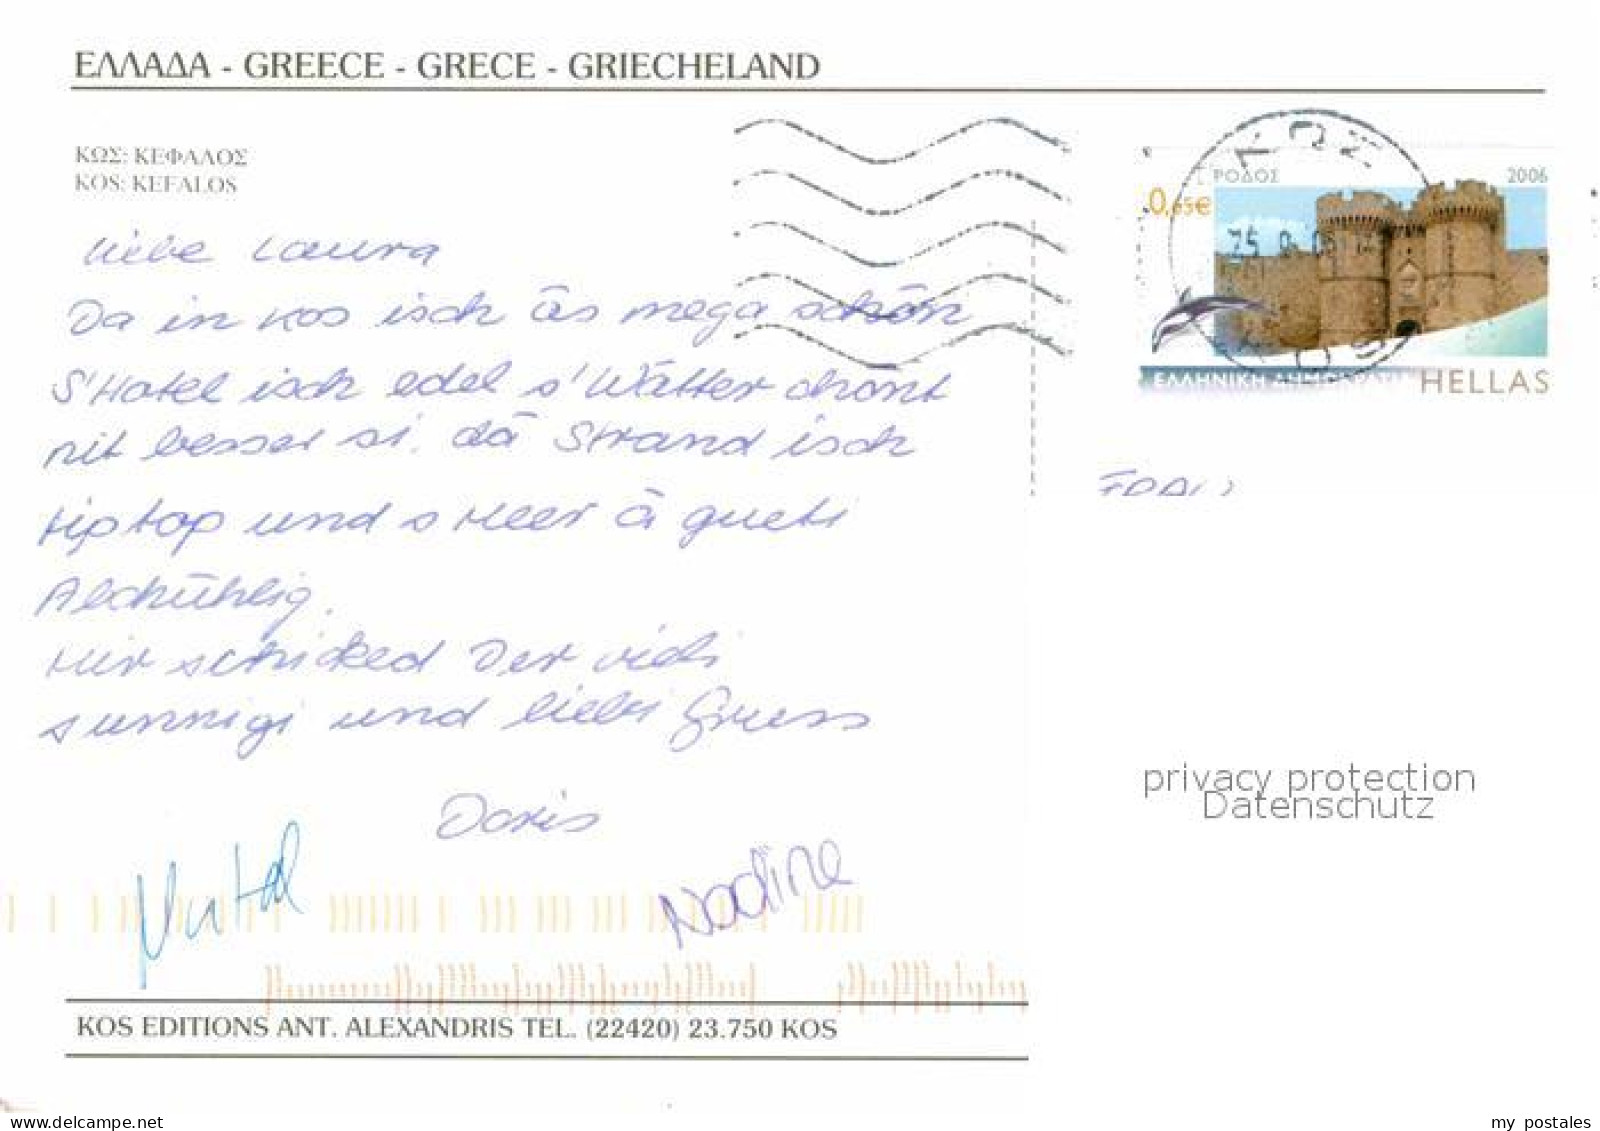 ΕΛΛΑΔΑ - GREECE - GRECE - GRIECHELAND
ΚΩΣ: ΚΕΦΑΛΟΣ
KOS: KEFALOS
Liebe Laura
Da in Kos isch äs mega schön
S'Hotel isch edel s'Wätter chönt
nit besser si. dä Strand isch
tiptop und s Meer ä gueti
Abchühlig.
Mir schicked Der vieli
sunnigi und liebi Grüess
Doris
Nadine
KOS EDITIONS ANT. ALEXANDRIS TEL. (22420) 23.750 KOS
ΡΟΔΟΣ
2006
0,65€
ΚΩΣ
KOS
ΕΛΛΗΝΙΚΗ ΔΗΜΟΚΡΑΤΙΑ
HELLAS
privacy protection
Datenschutz
www.delcampe.net
my_postales